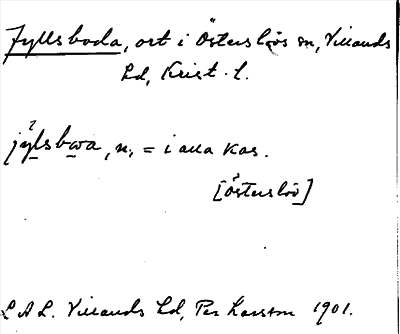 Jyllsboda, ort i Österslövs sn, Villands
hd, Krist. l.
jylsbωa, n, = i alla kas.
[Österslöv]
L A L. Villands hd, Per Larsson 1901.